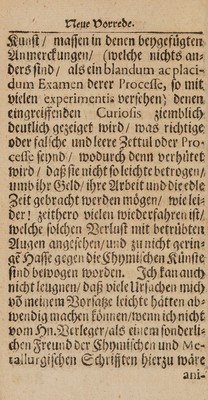 Neue Vorrede.
Kunst / massen in denen beygefügten
Anmerckungen / (welche nichts an-
ders sind / als ein blandum ac placi-
dum Examen derer Processe, so mit
vielen experimentis versehen) denen
eingreiffenden Curiosis ziemblich
deutlich gezeiget wird / was richtige
oder falsche und leere Zettul oder Pro-
cesse seynd / wodurch denn verhütet
wird / daß sie nicht so leichte betrogen /
umb ihr Geld / ihre Arbeit und die edle
Zeit gebracht werden mögen / wie lei-
der! zeithero vielen wiederfahren ist /
welche solchen Verlust mit betrübten
Augen angesehen / und zu nicht gerin-
ge Hasse gegen die Chymischen Künste
sind bewogen worden. Ich kan auch
nicht leugnen / daß viele Ursachen mich
võ meinem Vorsatze leichte hätten ab-
wendig machen können / wenn ich nicht
vom Hn. Verleger / als einem sonderli-
chen Freund der Chymischen und Me-
tallurgischen Schrifften hierzu wäre
ani-